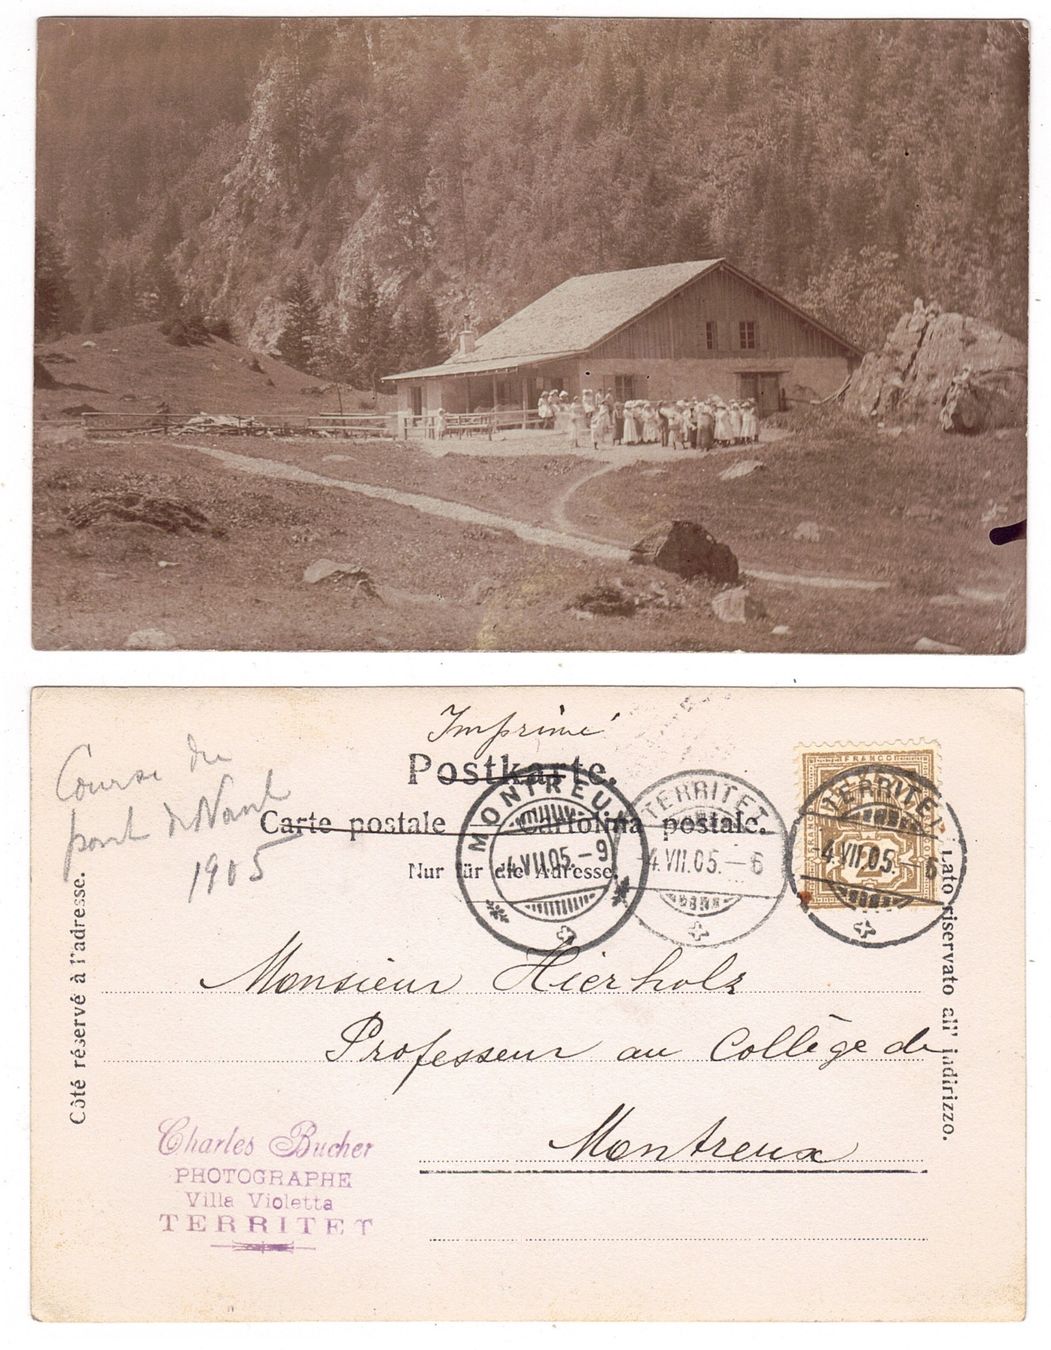 Imprimé
Postkarte.
Carte postale Cartolina postale.
Nur für die Adresse.
Course du
pont de Nant
1905
MONTREUX
4.VII.05.-9
TERRITET
-4.VII.05.-6
FRANCO
TERRITET
-4.VII.05.-6
Côté réservé à l'adresse.
Lato riservato all' indirizzo.
Monsieur Hierholz
Professeur au Collège de
Montreux
Charles Bucher
PHOTOGRAPHE
Villa Violetta
TERRITET